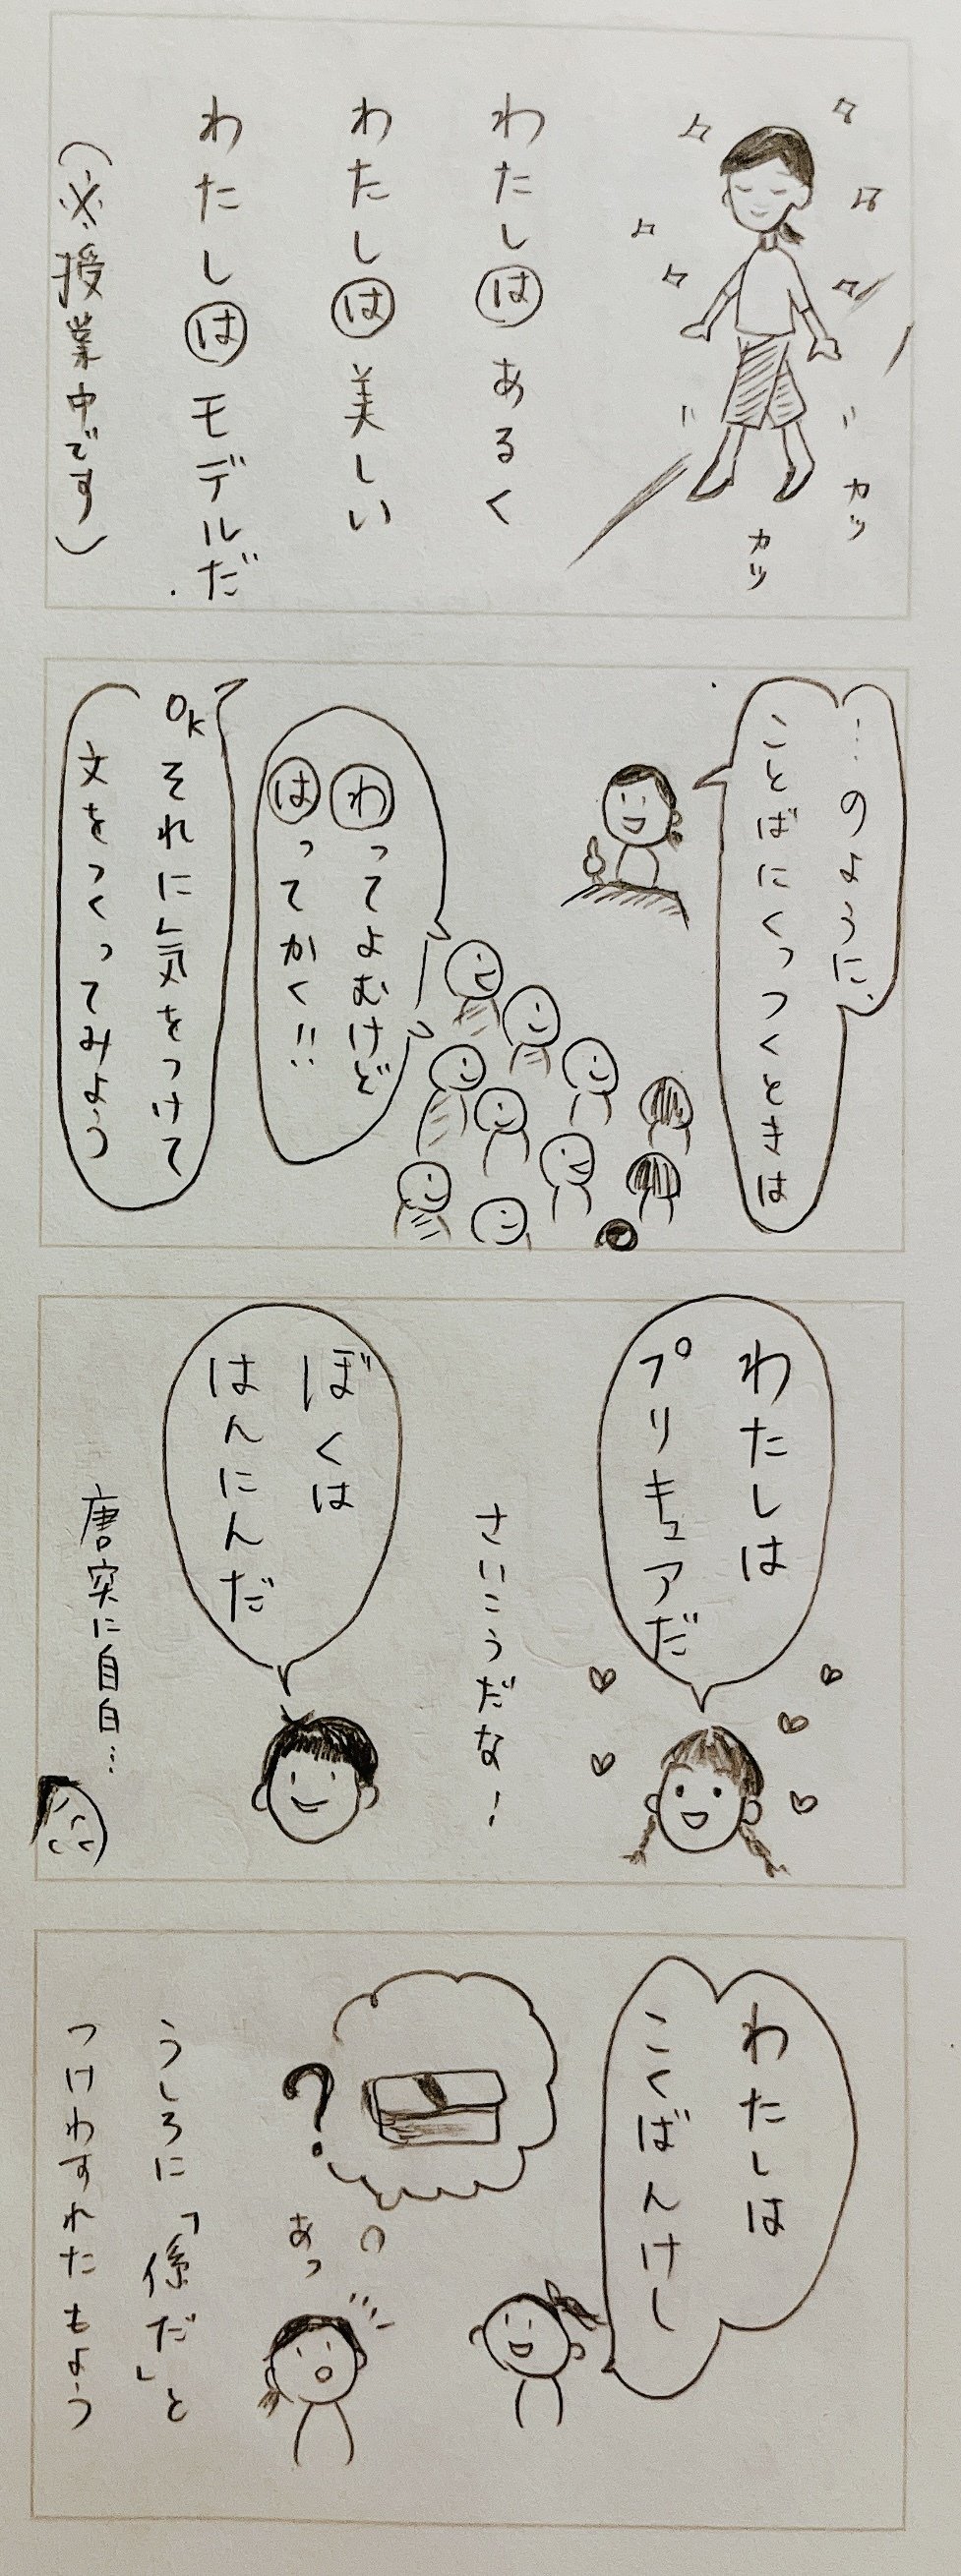 カッ
カッ
わたしはあるく
わたしは美しい
わたしはモデルだ
(※授業中です)
…のように、
ことばにくっつくときは
わってよむけど
はってかく!!
OKそれに気をつけて
文をつくってみよう
わたしは
プリキュアだ
さいこうだな!
ぼくは
はんにんだ
唐突に自白…
わたしは
こくばんけし
?
あっ
うしろに「係だ」と
つけわすれたもよう